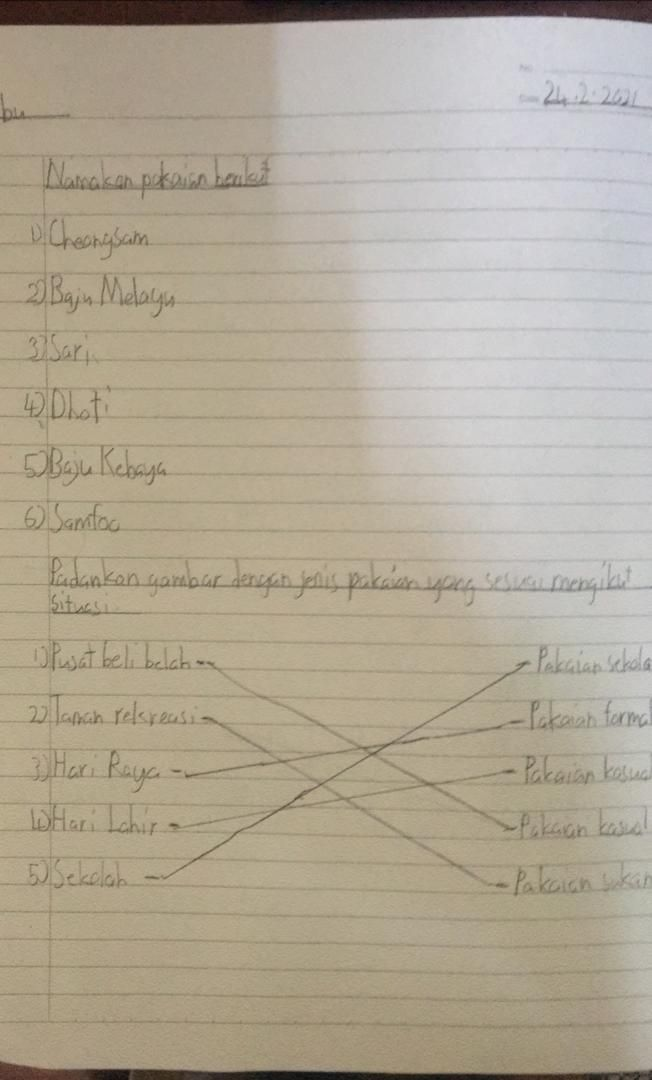 bu
24.2.2021
Namakan pakaian berikut
1) Cheongsam
2) Baju Melayu
3) Sari
4) Dhoti
5) Baju Kebaya
6) Samfoo
Padankan gambar dengan jenis pakaian yang sesuai mengikut
situasi
1) Pusat beli belah Pakaian sekola
2) Taman relsreasi Pakaian formal
3) Hari Raya Pakaian kasual
4) Hari Lahir Pakaian kasual
5) Sekolah Pakaian sukan